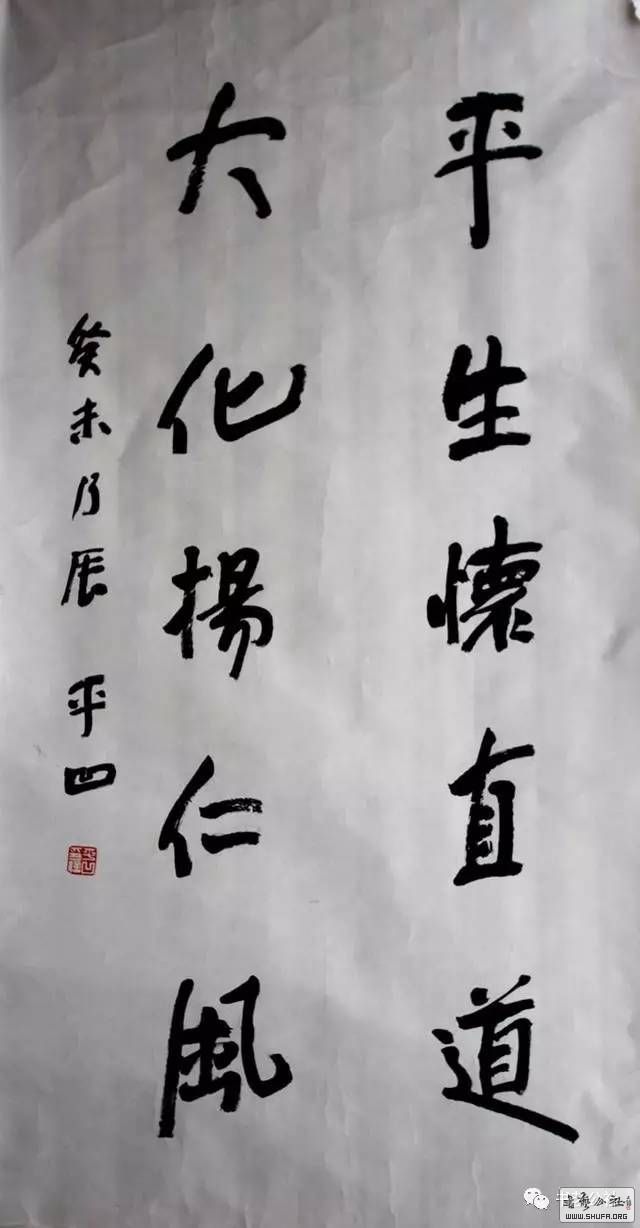 平生懷直道
大化揚仁風
癸未乃辰 平凹
WWW.SHUFA.ORG